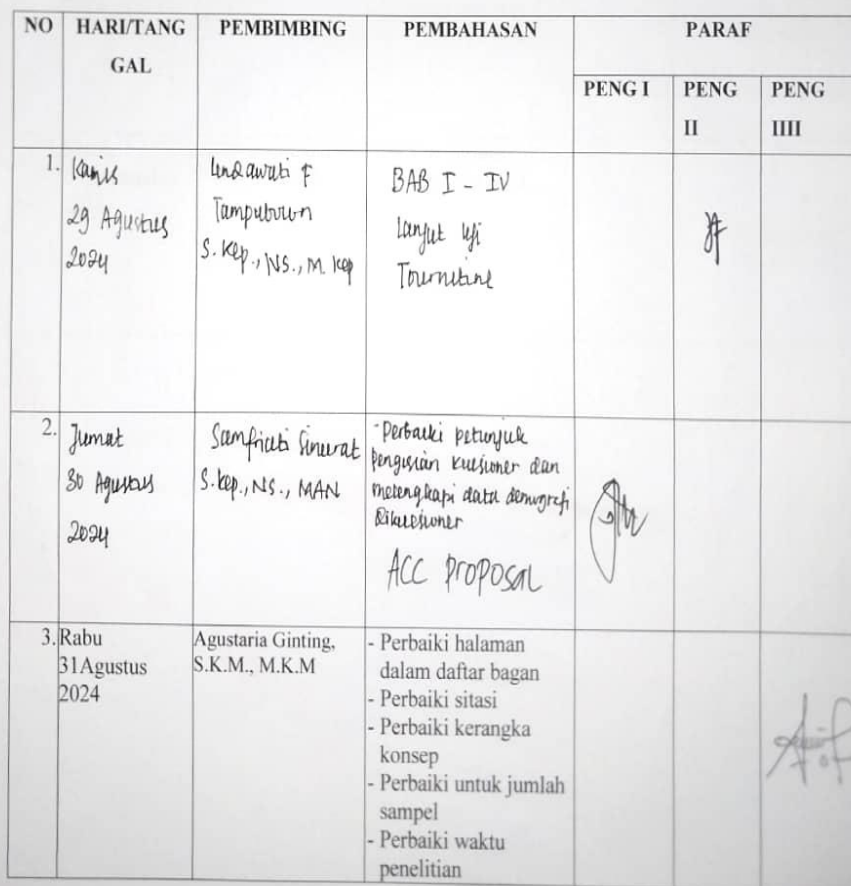 NO HARI/TANG PEMBIMBING PEMBAHASAN PARAF
GAL
PENG I PENG PENG
II IIII
1. Kamis
29 Agustus
2024
Lindawati F
Tampubolon
S. Kep., NS., M. Kep
BAB I - IV
Lanjut Uji
Tournitine
2. Jumat
30 Agustus
2024
Samfriati Sinurat
S. Kep., NS., MAN
- Perbaiki petunjuk
pengisian kuesioner dan
melengkapi data demografi
Dikuesioner
ACC Proposal
3. Rabu
31Agustus
2024
Agustaria Ginting,
S.K.M., M.K.M
- Perbaiki halaman
dalam daftar bagan
- Perbaiki sitasi
- Perbaiki kerangka
konsep
- Perbaiki untuk jumlah
sampel
- Perbaiki waktu
penelitian